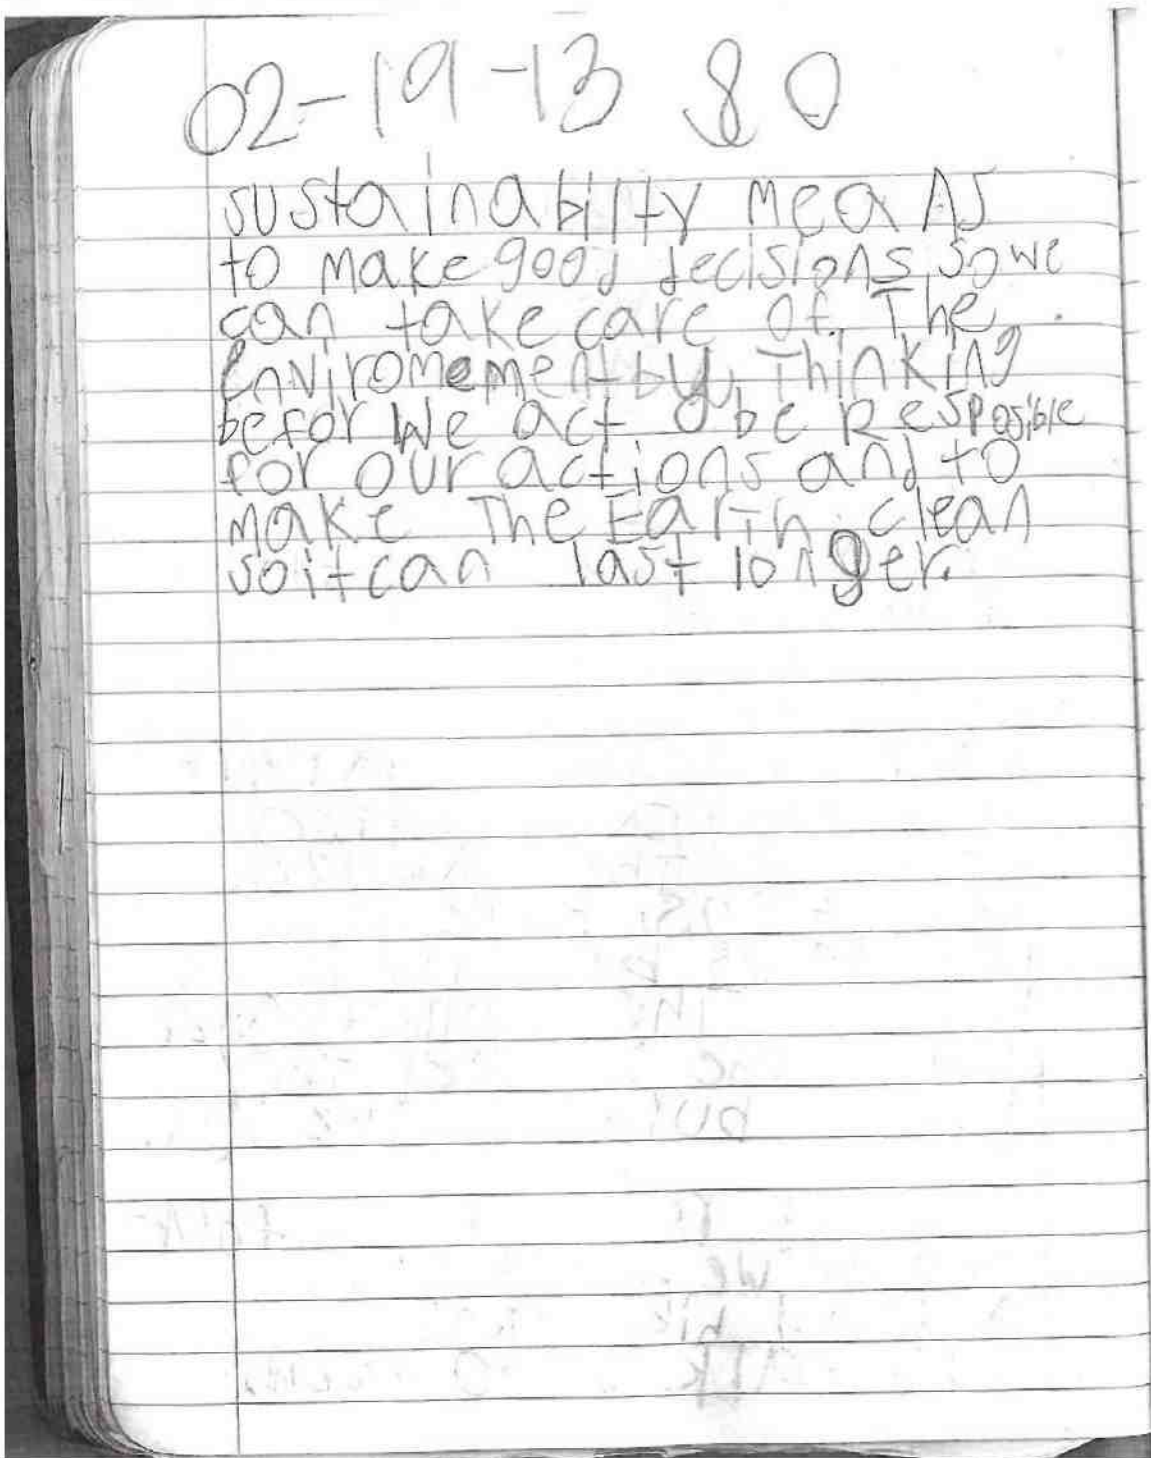 02-19-13 80
sustainabilty meaNs
to make good decisions so we
can take care of. The
enviromement by, Thinking
befor We act, be Resposible
for our actions and to
make The EarTh clean
so it can last longer.